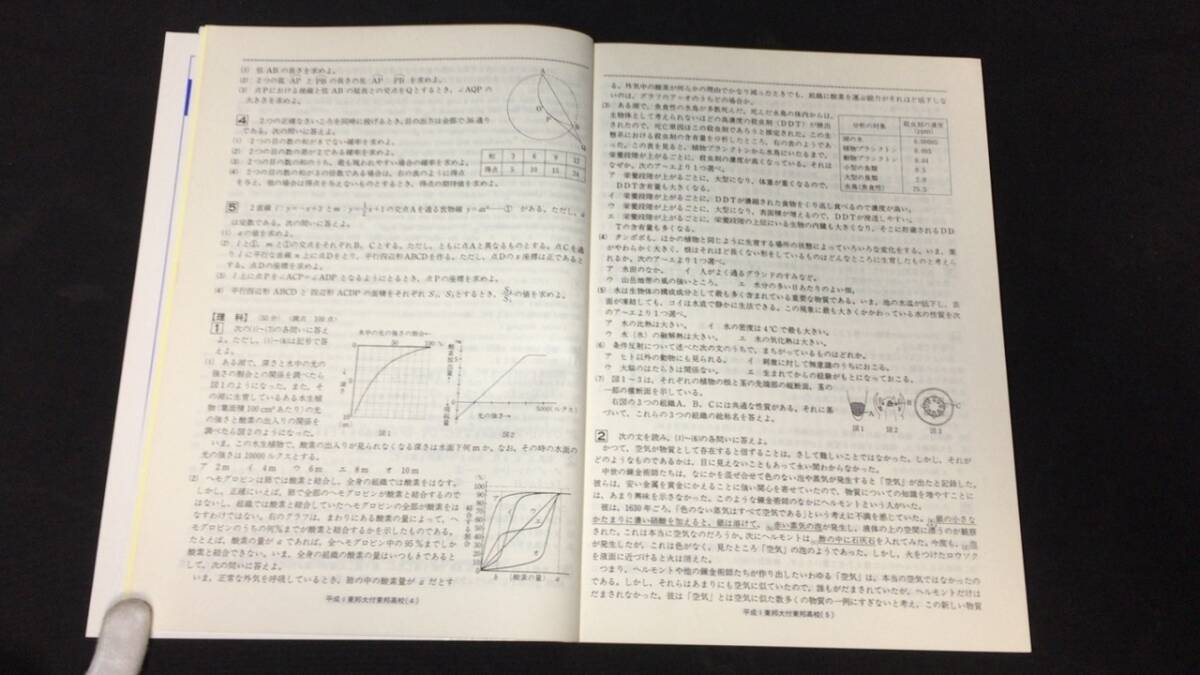 (1) 弦ABの長さを求めよ。
(2) 2つの弧 AP と PB の長さの比 AP : PB を求めよ。
(3) 点Pにおける接線と弦ABの延長との交点をQとするとき、∠AQPの
大きさを求めよ。
A
O
P
B
Q
4 2つの正確なさいころを同時に投げるとき、目の出方は全部で36通り
である。次の問いに答えよ。
(1) 2つの目の数の和が3でない確率を求めよ。
(2) 2つの目の数の差が2である確率を求めよ。
(3) 2つの目の数の和のうち、最も現れやすい場合の確率を求めよ。
(4) 2つの目の数の和が3の倍数である場合は、右の表のように得点
を与え、他の場合は得点を与えないものとするとき、得点の期待値を求めよ。
和 3 6 9 12
得点 5 10 15 24
5 2直線 l : y=-x+2 と m : y=½x+1 の交点Aを通る放物線 y=ax²……① がある。ただし、a
は定数である。次の問いに答えよ。
(1) aの値を求めよ。
(2) lと①、mと①の交点をそれぞれB、Cとする。ただし、ともに点Aと異なるものとする。点Cを通
りlに平行な直線n上に点Dをとり、平行四辺形ABCDを作る。ただし、点Dのx座標は正であると
する。点Dの座標を求めよ。
(3) l上に点Pを∠ACP=∠ADPとなるようにとるとき、点Pの座標を求めよ。
(4) 平行四辺形ABCDと四辺形ACDPの面積をそれぞれS₁、S₂とするとき、S₂/S₁の値を求めよ。
【理 科】 (50分) 〈満点 100点〉
1 次の(1)~(7)の各問いに答え
よ。ただし、(1)~(6)は記号で答
えよ。
(1) ある湖で、深さと水中の光の
強さの割合との関係を調べたら
図1のようになった。また、そ
の湖に生育しているある水生植
物(葉面積100cm²あたり)の光
の強さと酸素の出入りの関係を
調べたら図2のようになった。
水中の光の強さの割合→
50 100 %
図1
光の強さ→
5000(ルクス)
図2
いま、この水生植物で、酸素の出入りが見られなくなる深さは水面下何mか。なお、その時の水面の
光の強さは10000ルクスとする。
ア 2m イ 4m ウ 6m エ 8m オ 10m
(2) ヘモグロビンは肺では酸素と結合し、全身の組織では酸素をはなす。
しかし、正確にいえば、肺で全部のヘモグロビンが酸素と結合するので
はないし、組織では酸素と結合していたヘモグロビンの全部が酸素をは
なすわけではない。右のグラフは、まわりにある酸素の量によって、ヘ
モグロビンのうちの何%までが酸素と結合するかを示したものである。
たとえば、酸素の量がaであれば、全ヘモグロビン中の95%までしか
酸素と結合できない。いま、全身の組織の酸素の量はいつもbであると
して、次の問いに答えよ。
いま、正常な外気を呼吸しているとき、肺の中の酸素量がaだとす
%
100
90
80
70
60
50
40
30
20
10
0
結合する割合
b (酸素の量) a
平成4東邦大付東邦高校(4)
る。外気中の酸素が何らかの理由でかなり減ったときでも、組織に酸素を運ぶ能力がそれほど低下しな
いのは、グラフのア~オのうちどの場合か。
(3) ある湖で、魚食性の水鳥が多数死んだ。死んだ水鳥の体内からは、
生物体として考えられないほどの高濃度の殺虫剤(DDT)が検出
されたので、死亡原因はこの殺虫剤であろうと推定された。この生
態系における殺虫剤の含有量を分析したところ、右の表のようであ
った。この表を見ると、植物プランクトンから水鳥にいたるまで、
栄養段階が上がるごとに、殺虫剤の濃度が高くなっている。それは
なぜか。次のア~エより1つ選べ。
分析の対象 殺虫剤の濃度(ppm)
湖の水 0.00005
植物プランクトン
動物プランクトン 0.04
小型の魚類 0.5
大型の魚類 2.0
水鳥(魚食性) 75.5
ア 栄養段階が上がるごとに、大型になり、体重が重くなるので、
DDT含有量も大きくなる。
イ 栄養段階が上がるごとに、DDTが濃縮された食物をくり返し食べるので濃度が高い。
ウ 栄養段階が上がるごとに、大型になり、表面積が増えるので、DDTが浸透しやすい。
エ 栄養段階が上がるごとに、栄養段階の上位にいる生物の内臓も大きくなり、そこに貯蔵されるDD
Tの含有量も多くなる。
(4) タンポポも、ほかの植物と同じように生育する場所の状態によっていろいろな変化をする。いま、葉
がやわらかく大きく、根はそれほど長くない形をしているものはどんなところに生育したものと考えら
れるか。次のア~エより1つ選べ。
ア 水田のなか。 イ 人がよく通るグランドのすみなど。
ウ 山岳地帯の風の強いところ。 エ 水分の多い日あたりのよい畑。
(5) 水は生物体の構成成分として最も多く含まれている重要な物質である。いま、池の水温が低下し、表
面が凍結しても、コイは水底で静かに生活できる。この現象に最も大きくかかわっている水の性質を次
のア~エより1つ選べ。
ア 水の比熱は大きい。 イ 水の密度は4℃で最も大きい。
ウ 氷(水)の融解熱は大きい。 エ 水の気化熱は大きい。
(6) 条件反射について述べた次の文のうちで、まちがっているものはどれか。
ア ヒト以外の動物にも見られる。 イ 刺激に対して無意識のうちにおこる。
ウ 大脳のはたらきは関係ない。 エ 生まれてからの経験がもとになっておこる。
(7) 図1~3は、それぞれの植物の根と茎の先端部の縦断面、茎の
一部の横断面を示している。
右図の3つの組織A、B、Cには共通な性質がある。それに基
づいて、これらの3つの組織の総称名を答えよ。
A
B
C
図1
図2
図3
2 次の文を読み、(1)~(6)の各問いに答えよ。
かつて、空気が物質として存在すると信ずることは、さして難しいことではなかった。しかし、それが
どのようなものであるかは、目に見えないこともあって永い間わからなかった。
中世の錬金術師たちは、なにかを混ぜ合せて色のない泡や蒸気が発生すると「空気」が出たと記録した。
彼らは、安い金属を黄金にかえることに強い関心を寄せていたので、物質についての知識を増やすことに
は、あまり興味を示さなかった。このような錬金術師のなかにヘルモントという人がいた。
彼は、1630年ごろ、「色のない蒸気はすべて空気である」という考えに不満を感じていた。銀の小さな
かたまりに濃い硝酸を加えると、銀は溶けて、赤い蒸気の泡が発生し、液体の上の空間に漂うのが観察
された。これは本当に空気なのだろうか。次にヘルモントは、酢の中に石灰石を入れてみた。今度も、泡
が発生したが、これは色がなく、見たところ「空気」の泡のようであった。しかし、火をつけたロウソク
を液面に近づけると火は消えた。
つまり、ヘルモントや他の錬金術師たちが作り出したいわゆる「空気」は、本当の空気ではなかったの
である。しかし、それらはあまりにも空気に似ていたので、誰もがだまされていたが、ヘルモントだけは
だまされなかった。彼は「空気」とは空気に似た数多くの物質の一例にすぎないと考え、この新しい物質
平成4東邦大付東邦高校(5)